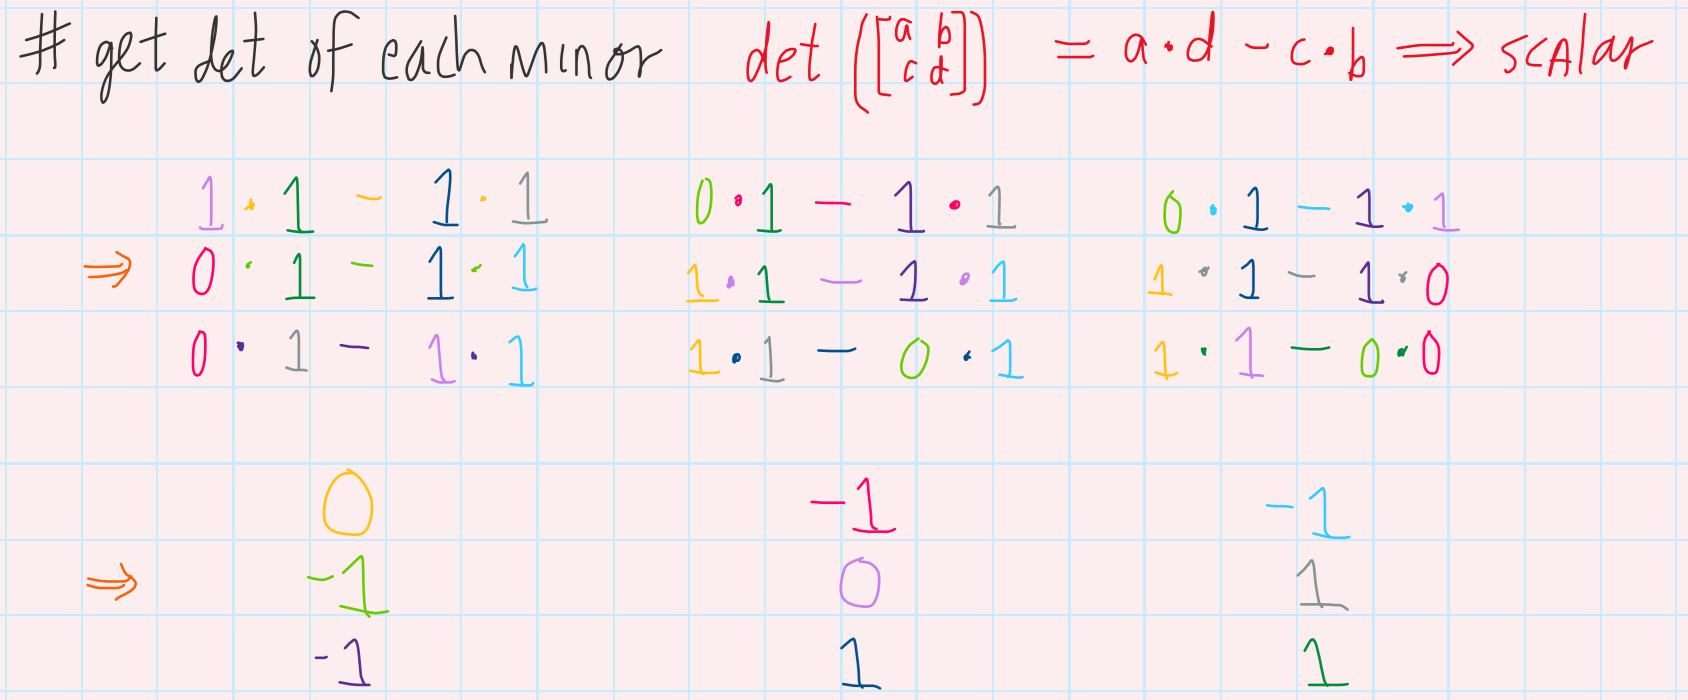 # get det of each minor det([a b c d]) = a·d - c·b ⟹ scalar
1·1 - 1·1 0·1 - 1·1 0·1 - 1·1
⇒ 0·1 - 1·1 1·1 - 1·1 1·1 - 1·0
0·1 - 1·1 1·1 - 0·1 1·1 - 0·0
0 -1 -1
⇒ -1 0 1
-1 1 1